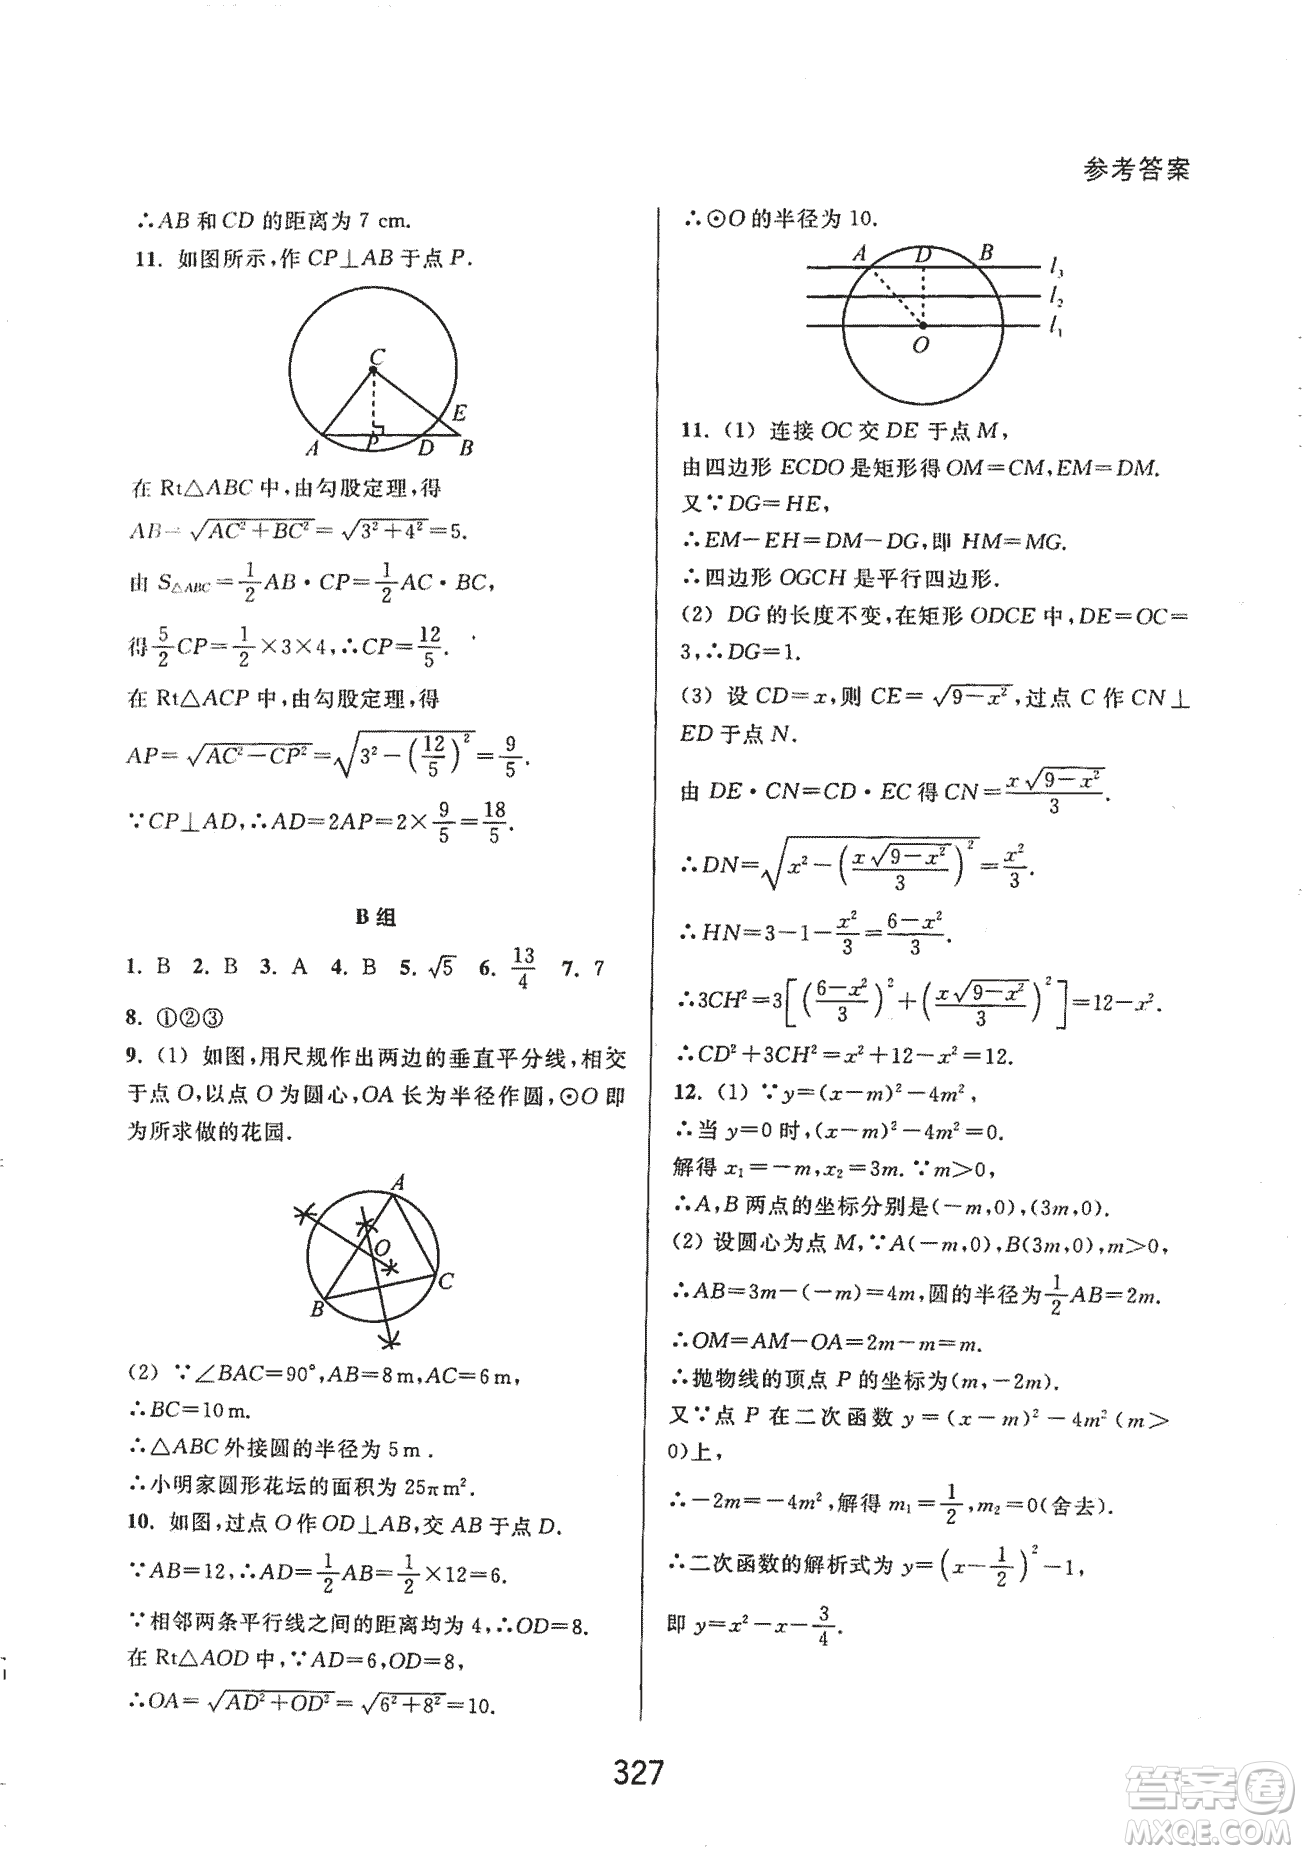 参考答案
∴AB 和 CD 的距离为 7 cm.
11. 如图所示,作 CP⊥AB 于点 P.
C
E
A P D B
在 Rt△ABC 中,由勾股定理,得
AB=√(AC²+BC²)=√(3²+4²)=5.
由 S△ABC=1/2 AB·CP=1/2 AC·BC,
得 5/2 CP=1/2×3×4,∴CP=12/5.
在 Rt△ACP 中,由勾股定理,得
AP=√(AC²-CP²)=√(3²-(12/5)²)=9/5.
∵CP⊥AD,∴AD=2AP=2×9/5=18/5.
B 组
1. B 2. B 3. A 4. B 5. √5 6. 13/4 7. 7
8. ①②③
9. (1) 如图,用尺规作出两边的垂直平分线,相交
于点 O,以点 O 为圆心,OA 长为半径作圆,⊙O 即
为所求做的花园.
A
O
C
B
(2) ∵∠BAC=90°,AB=8 m,AC=6 m,
∴BC=10 m.
∴△ABC 外接圆的半径为 5 m.
∴小明家圆形花坛的面积为 25π m².
10. 如图,过点 O 作 OD⊥AB,交 AB 于点 D.
∵AB=12,∴AD=1/2 AB=1/2×12=6.
∵相邻两条平行线之间的距离均为 4,∴OD=8.
在 Rt△AOD 中,∵AD=6,OD=8,
∴OA=√(AD²+OD²)=√(6²+8²)=10.
∴⊙O 的半径为 10.
A D B
l₃
l₂
l₁
O
11. (1) 连接 OC 交 DE 于点 M,
由四边形 ECDO 是矩形得 OM=CM,EM=DM.
又∵DG=HE,
∴EM-EH=DM-DG,即 HM=MG.
∴四边形 OGCH 是平行四边形.
(2) DG 的长度不变,在矩形 ODCE 中,DE=OC=
3,∴DG=1.
(3) 设 CD=x,则 CE=√(9-x²),过点 C 作 CN⊥
ED 于点 N.
由 DE·CN=CD·EC 得 CN=x√(9-x²)/3.
∴DN=√(x²-(x√(9-x²)/3)²)=x²/3.
∴HN=3-1-x²/3=(6-x²)/3.
∴3CH²=3[((6-x²)/3)²+(x√(9-x²)/3)²]=12-x².
∴CD²+3CH²=x²+12-x²=12.
12. (1) ∵y=(x-m)²-4m²,
∴当 y=0 时,(x-m)²-4m²=0.
解得 x₁=-m,x₂=3m. ∵m>0,
∴A,B 两点的坐标分别是(-m,0),(3m,0).
(2) 设圆心为点 M,∵A(-m,0),B(3m,0),m>0,
∴AB=3m-(-m)=4m,圆的半径为 1/2 AB=2m.
∴OM=AM-OA=2m-m=m.
∴抛物线的顶点 P 的坐标为(m,-2m).
又∵点 P 在二次函数 y=(x-m)²-4m²(m>
0)上,
∴-2m=-4m²,解得 m₁=1/2,m₂=0(舍去).
∴二次函数的解析式为 y=(x-1/2)²-1,
即 y=x²-x-3/4.
327
答案圈
MXQE.COM